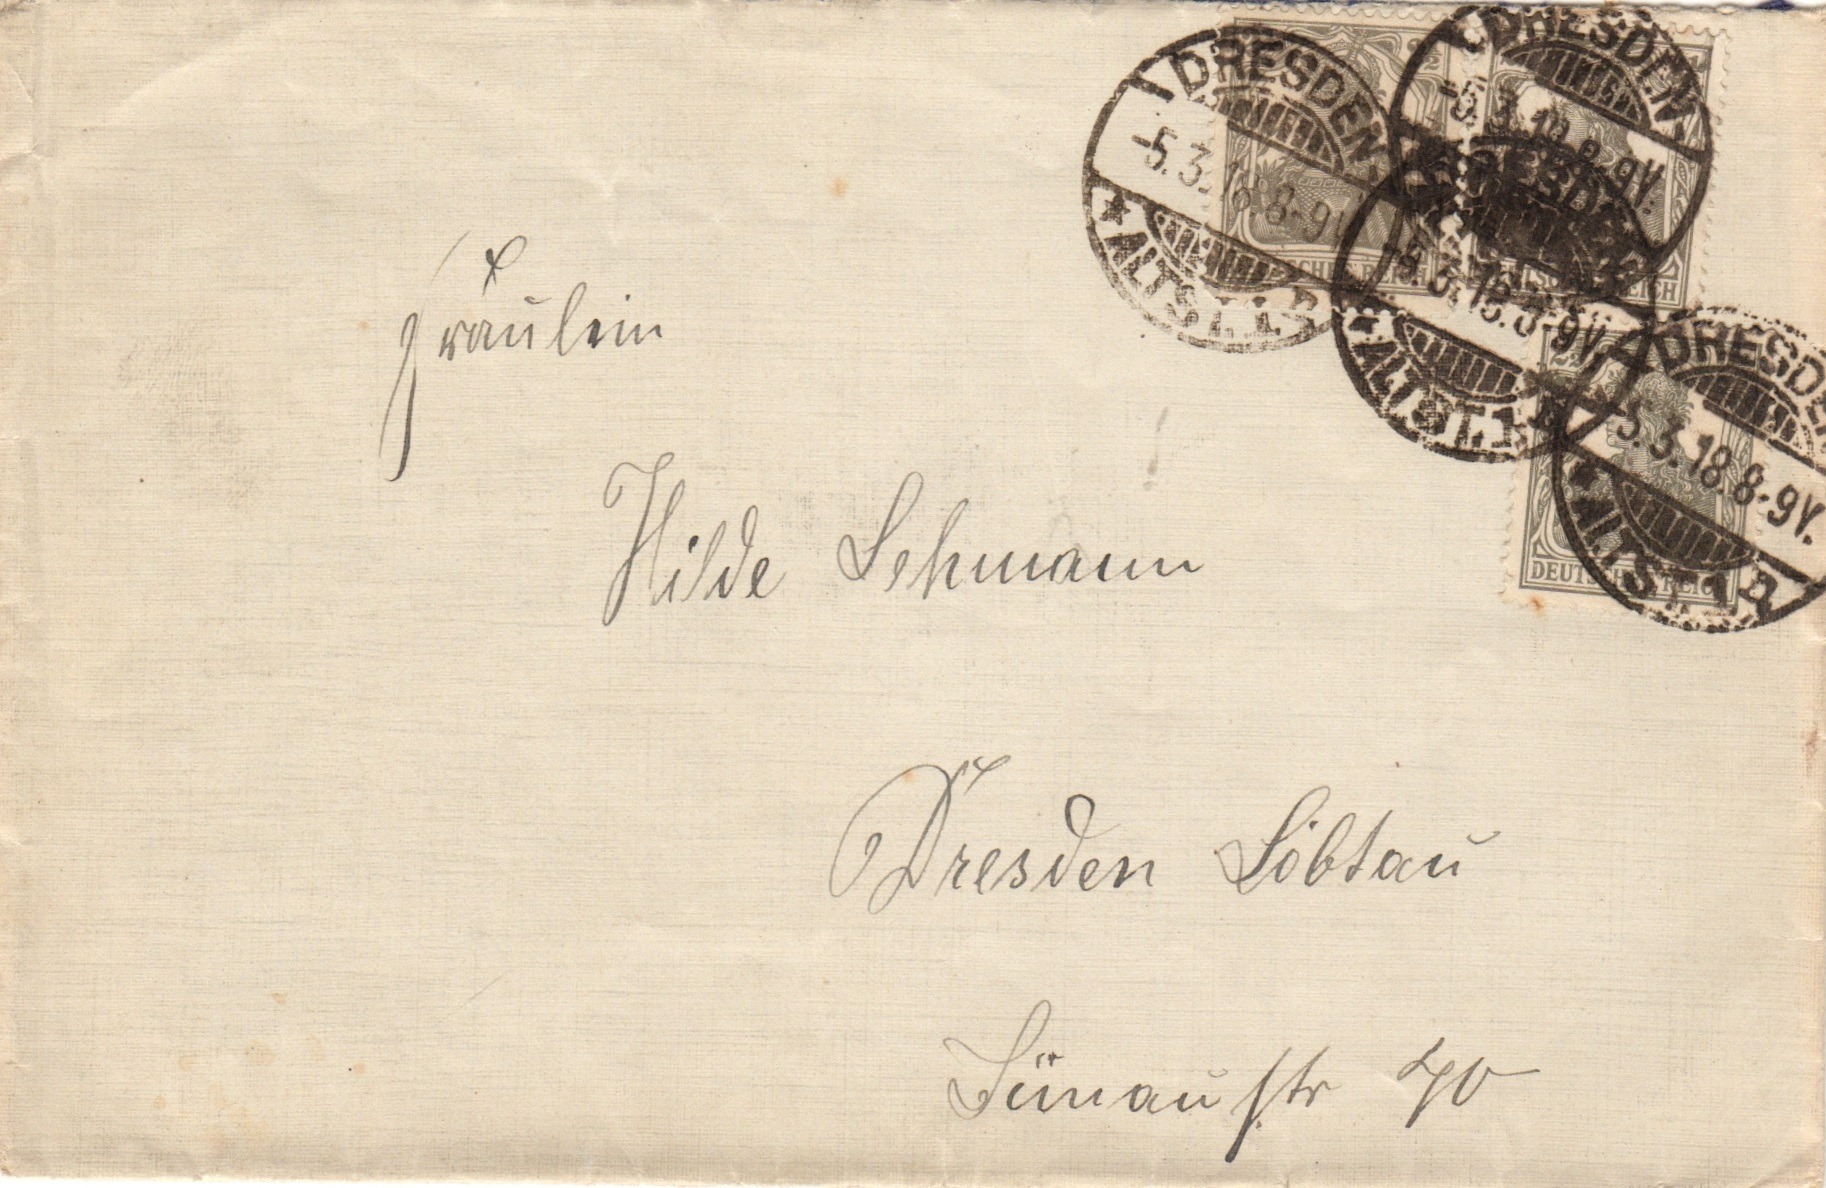 DRESDEN-
-5.3.18.8-9V.
* ALTST.1.
DRESDEN-
-5.3.18.8-9V.
DRESDEN
5.3.18.8-9V.
* ALTST.1
DRESDEN
5.3.18.8-9V.
* ALTST.1
REICH
REICH
2½
DEUTSCHES REICH
Fräulein
Hilde Lehmann
Dresden Löbtau
str 40